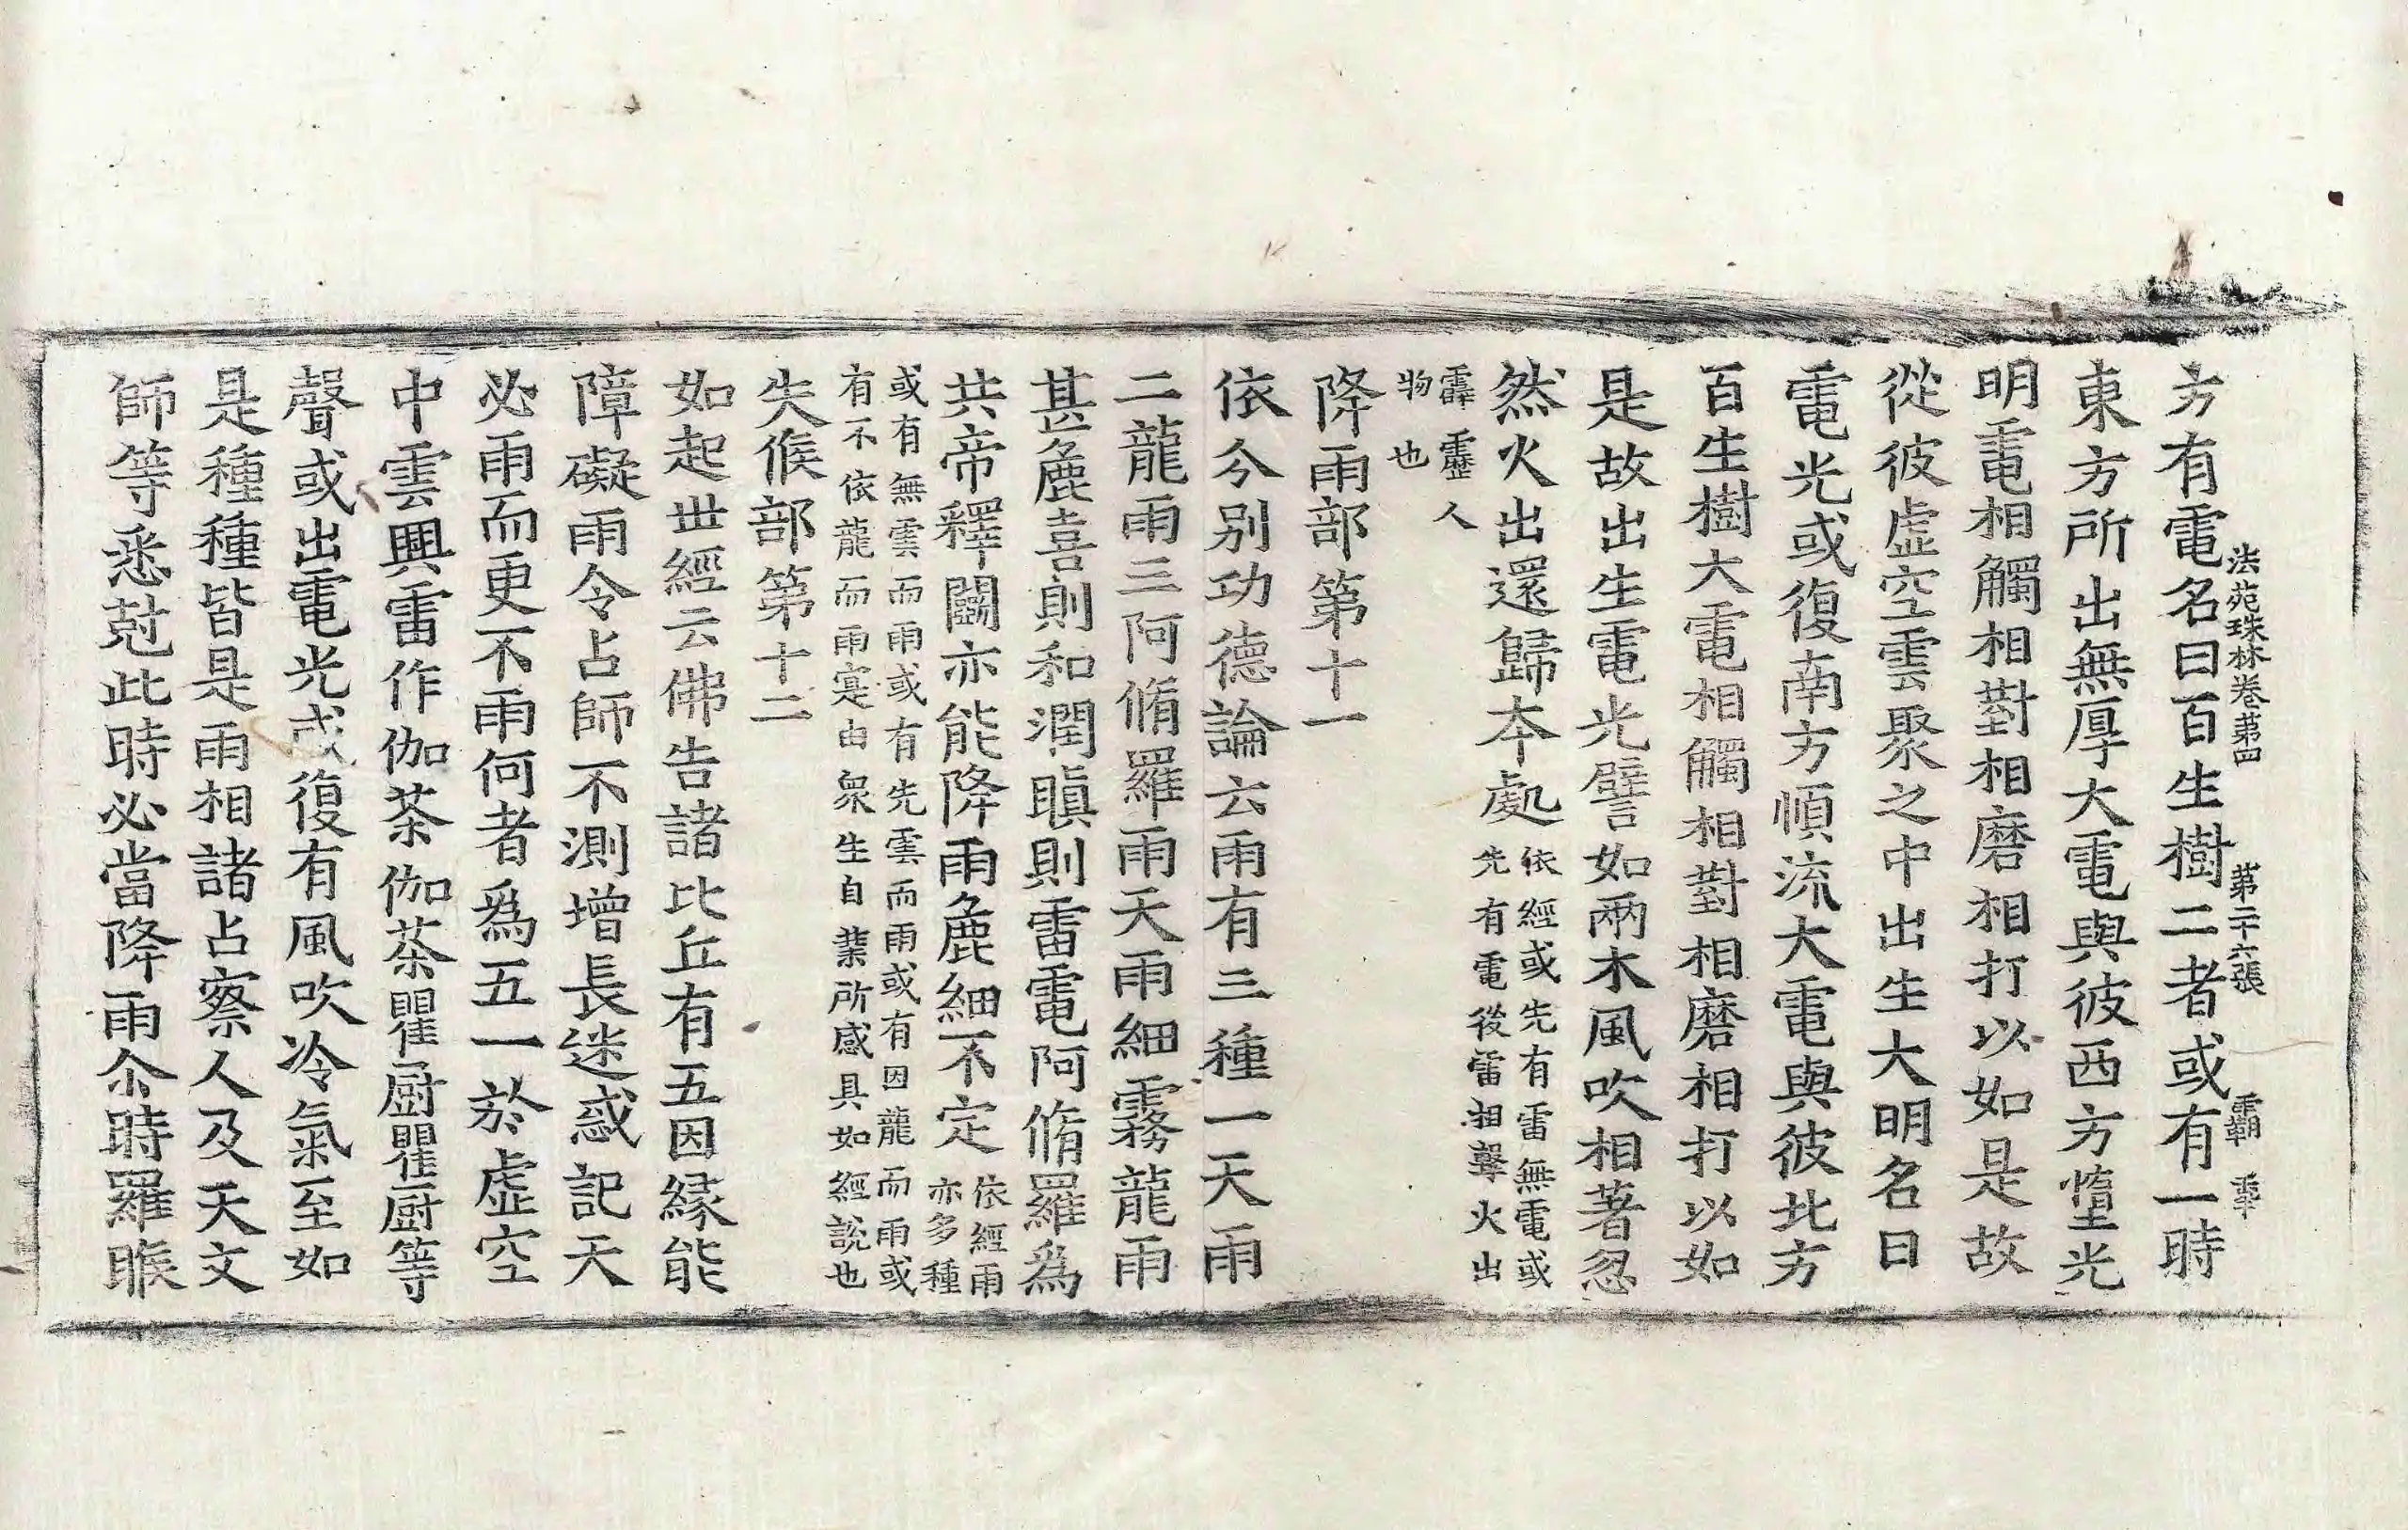 法苑珠林卷第四 第二十六張 霸 𠦑
方有電名曰百生樹二者或有一時
東方所出無厚大電與彼西方墮光
明電相觸相對相磨相打以如是故
從彼虛空雲聚之中出生大明名曰
電光或復南方順流大電與彼北方
百生樹大電相觸相對相磨相打以如
是故出生電光譬如兩木風吹相著忽
然火出還歸本處依經或先有雷無電或
先有電後雷相擊火出
霹靂人
物也
降雨部第十一
依分別功德論云雨有三種一天雨
二龍雨三阿脩羅雨天雨細霧龍雨
甚麁喜則和潤瞋則雷電阿脩羅為
共帝釋鬬亦能降雨麁細不定依經雨
亦多種
或有無雲而雨或有先雲而雨或有因龍而雨或
有不依龍而雨寔由衆生自業所感具如經說也
失候部第十二
如起世經云佛告諸比丘有五因緣能
障礙雨令占師不測增長迷惑記天
必雨而更不雨何者為五一於虛空
中雲興雷作伽茶伽茶瞿廚瞿廚等
聲或出電光或復有風吹冷氣至如
是種種皆是雨相諸占察人及天文
師等悉尅此時必當降雨尒時羅睺